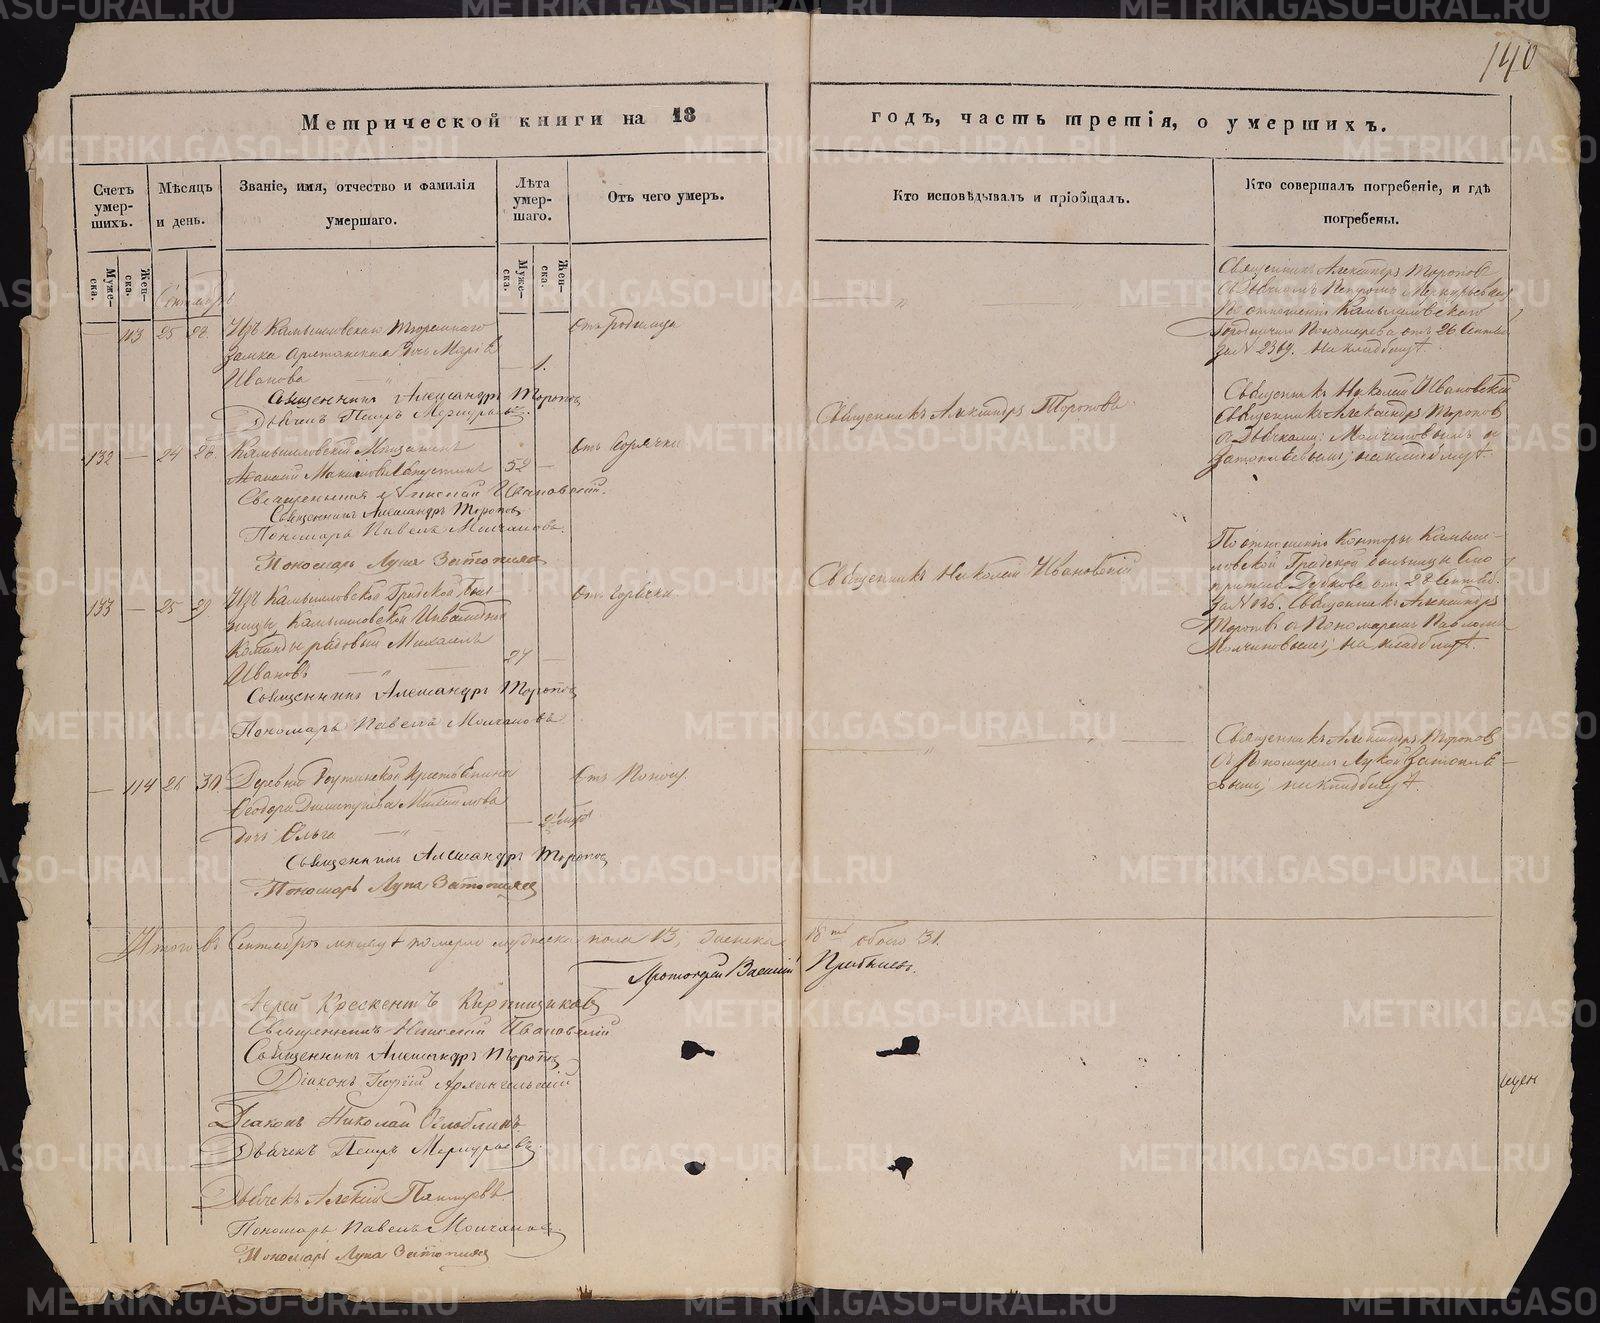 140
Метрической книги на 18
годъ, часть третія, о умершихъ.
Счетъ умер-шихъ.
Мѣсяцъ и день.
Званіе, имя, отчество и фамилія умершаго.
Лѣта умер-шаго.
Отъ чего умеръ.
Кто исповѣдывалъ и пріобщалъ.
Кто совершалъ погребеніе, и гдѣ погребены.
Муже-ска.
Жен-ска.
Муже-ска.
Жен-ска.
Сентябрь
— 113 25 27.
Изъ Камышловскаго Тюремнаго
замка арестанская дочь Марія
Иванова
1.
Отъ родимца
Священникъ Александръ Торопов
Дьячекъ Петръ Меркурьевъ.
Священникъ Александръ Торопов
съ Дьячкомъ Петромъ Меркурьевым
По отношенію Камышловскаго
Городничаго Пономарева отъ 26 Сентяб.
за № 2369. на кладбищѣ.
132 — 24 28.
Камышловскій Мѣщанинъ
52 —
Отъ Горячки
Священникъ Николай Ивановскій.
Священникъ Александръ Торопов
Пономарь Павелъ Молчановъ.
Пономарь Лука Затопляев
Священникъ Александръ Торопов
Священникъ Николай Ивановскій
Священникъ Александръ Торопов
съ Дьячками: Молчановымъ и
Затопляевымъ; на кладбищѣ.
133 — 25 29.
Изъ Камышловской Градской Боль
ницы, Камышловской Инвалидной
Команды рядовый Михаилъ
Ивановъ
27 —
Отъ Горячки
Священникъ Александръ Торопов
Пономарь Павелъ Молчановъ
Священникъ Николай Ивановскій
По отношенію Конторы Камыш-
ловской Градской больницы
отъ 28 Сентяб.
Священникъ Александръ
Торопов съ Пономаремъ Павломъ
Молчановымъ; на кладбищѣ.
— 114 28 30.
Деревни крестьянина
Ѳеодора Михайлова
дочь Ольга
Отъ Поносу.
Священникъ Александръ Торопов
Пономарь Лука Затопляев
Священникъ Александръ Торопов
съ Пономаремъ Лукой Затопляе-
вымъ; на кладбищѣ.
Итого въ Сентябрѣ мѣсяцѣ померло мужеска пола 13, женска 18 обоего 31.
Протоіерей Василій
Іерей Крескентъ Кирпищиков
Священникъ Николай Ивановскій
Священникъ Александръ Торопов
Діаконъ Георгій Архангельскій
Діаконъ Николай
Дьячекъ Петръ Меркурьевъ.
Дьячекъ Алексій
Пономарь Павелъ Молчанов
Пономарь Лука Затопляев
METRIKI.GASO-URAL.RU